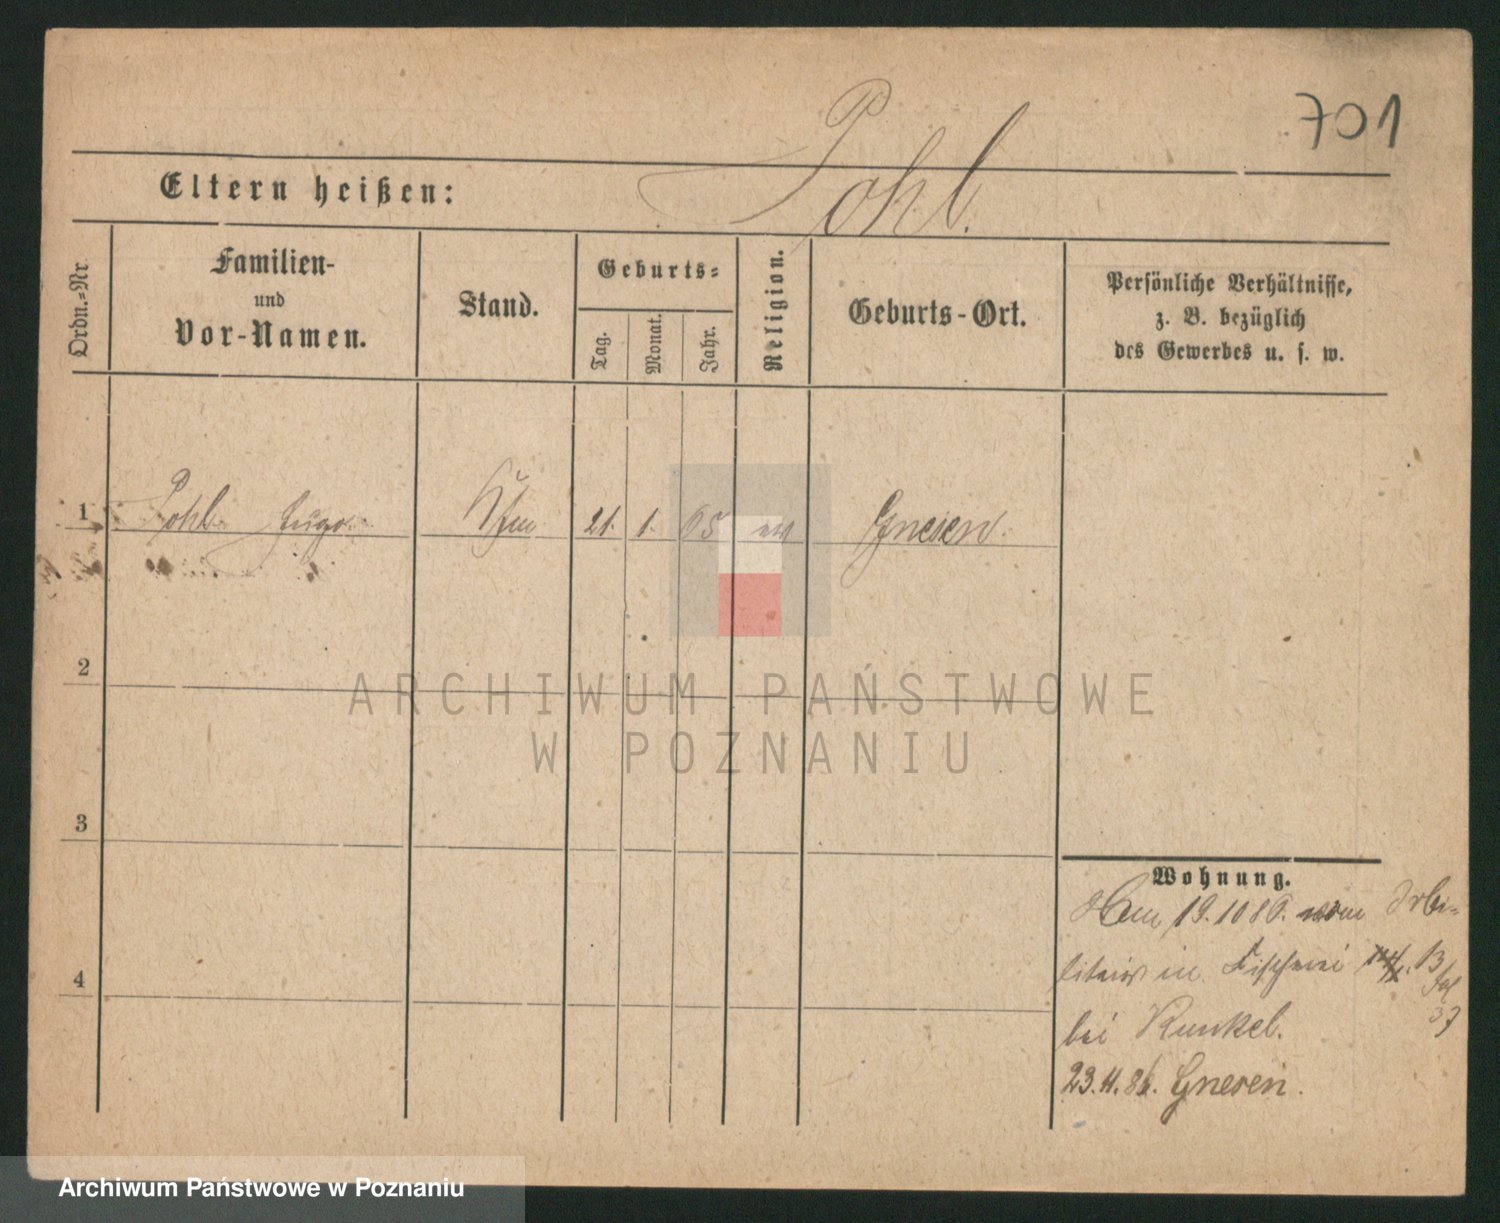 701
Pohl.
Eltern heißen:
Ordn.=Nr.
Familien-
und
Vor-Namen.
Stand.
Geburts=
Tag.
Monat.
Jahr.
Religion.
Geburts-Ort.
Persönliche Verhältnisse,
z. B. bezüglich
des Gewerbes u. s. w.
1 Pohl Hugo 21. 1. 65 ev Gnesen.
2
3
4
ARCHIWUM PAŃSTWOWE
W POZNANIU
Wohnung.
19. 10 86. vom
in Fischerei 13
bei Kunkel. 37
23. 11. 86. Gnesen.
Archiwum Państwowe w Poznaniu